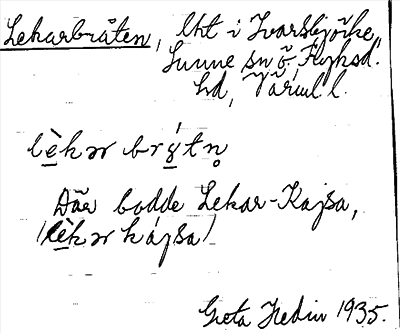 Lekarbråten, lht i Ivarsbjörke,
Sunne sn o, Fryksd.
hd, Värml l.
lèkər brýtn̥
Där bodde Lekar-Kajsa,
(lèkər kájsa)
Greta Hedin 1935.